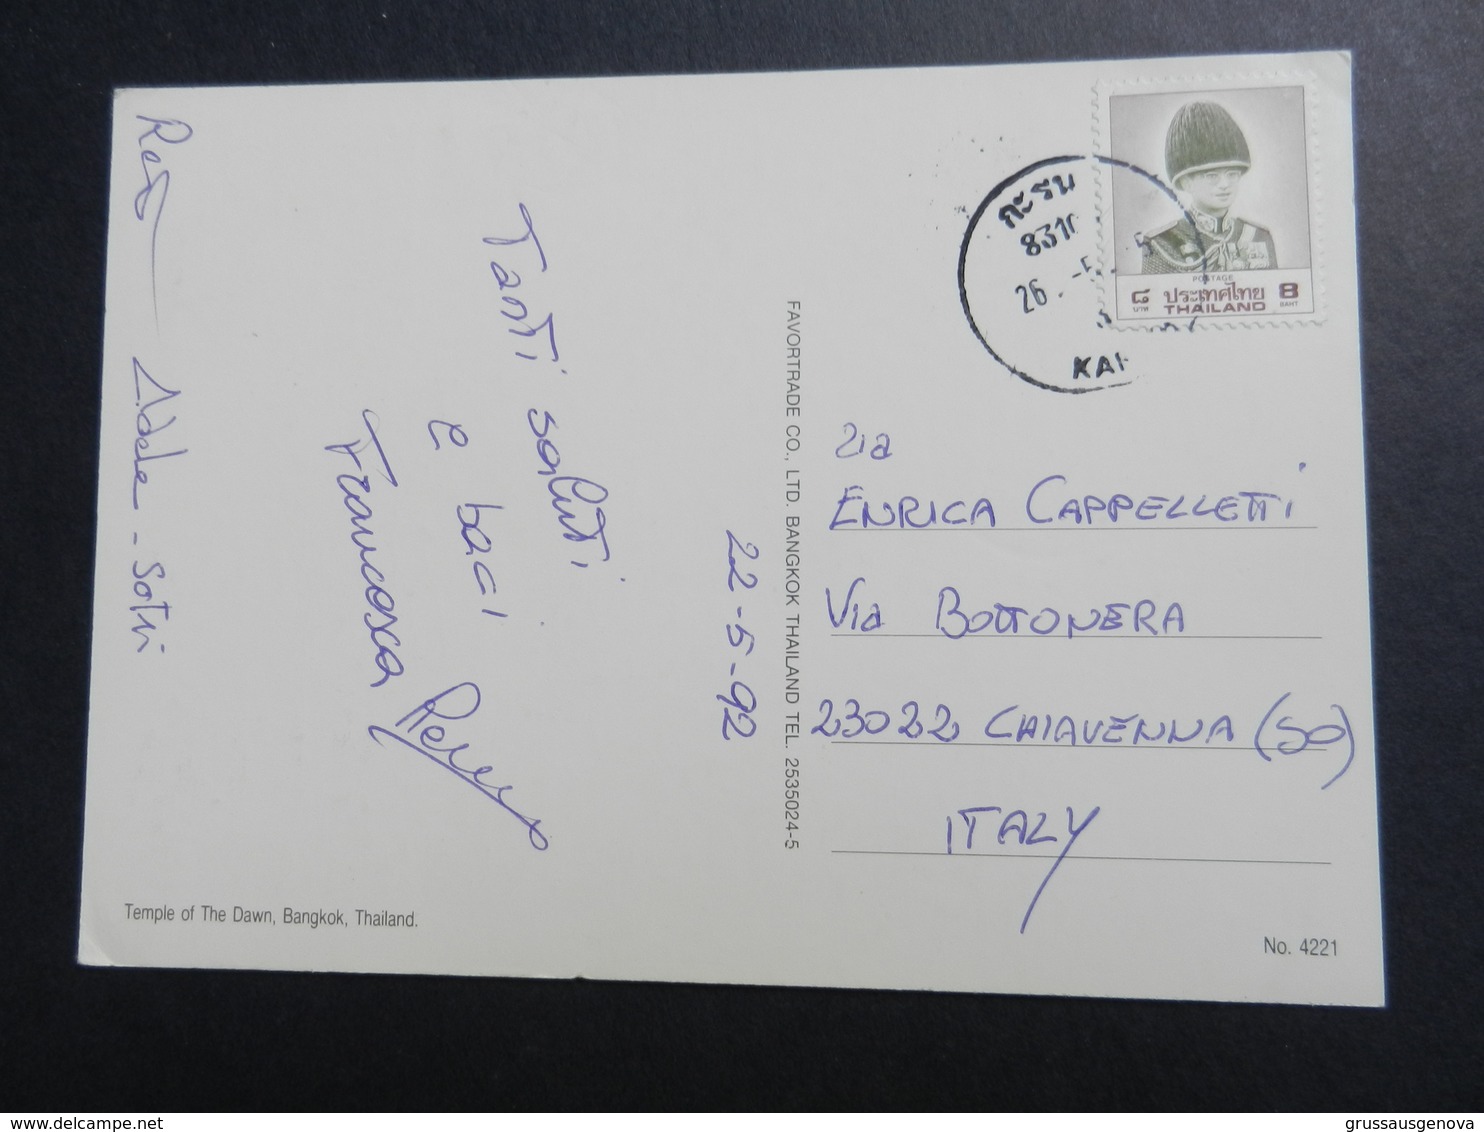 Tanti saluti
e baci
Francesca
Adele - Sotri
22-5-92
FAVORTRADE CO., LTD. BANGKOK THAILAND TEL. 2535024-5
Temple of The Dawn, Bangkok, Thailand.
กะรน
8310
26
KAR
POSTAGE
๘ ประเทศไทย 8
บาท THAILAND BAHT
zia
ENRICA CAPPELLETTI
Via BOTTONERA
23022 CHIAVENNA (SO)
ITALY
No. 4221
www.delcampe.net
grussausgenova